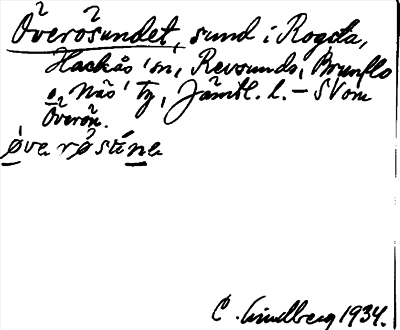 Överösundet, sund i Rogsta,
Hackås sn, Revsunds, Brunflo
o. Näs' tg, Jämtl. l. – S om
Överön.
øverøstine
C. Lindberg 1934.